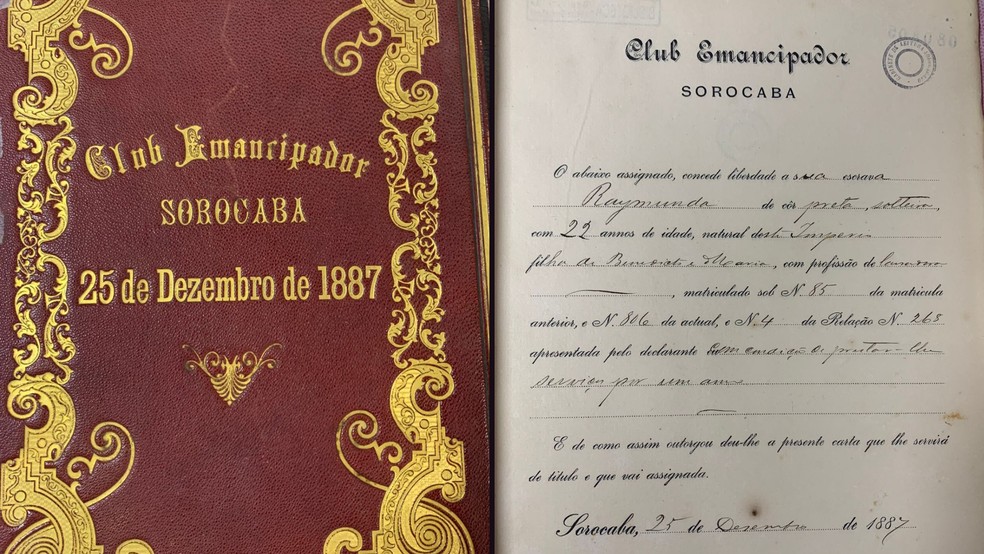 Club Emancipador
SOROCABA
25 de Dezembro de 1887
Club Emancipador
SOROCABA
O abaixo assignado, concede liberdade a sua escrava
Raymunda de côr preta, solteira,
com 22 annos de idade, natural deste Imperio
filha de Benedicto e Maria, com profissão de
, matriculado sob N. 85 da matricula
anterior, e N. 806 da actual, e N. 4 da Relação N. 263
apresentada pelo declarante com condição de prestar-lhe
serviços por um anno
E de como assim outorgou deu-lhe a presente carta que lhe servirá
de titulo e que vai assignada.
Sorocaba, 25 de Dezembro de 1887